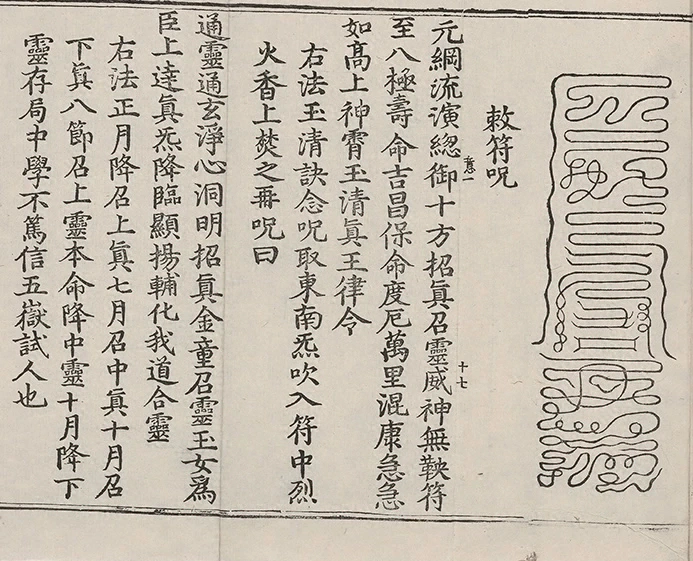 敕符呪
元綱流演總御十方招眞召靈威神無鞅符
至八極壽命吉昌保命度厄萬里混康急急
如高上神霄玉清眞王律令
右法玉清訣念呪取東南炁吹入符中烈
火香上焚之再呪曰
通靈通玄淨心洞明招眞金童召靈玉女爲
臣上達眞炁降臨顯揚輔化我道合靈
右法正月降召上眞七月召中眞十月召
下眞八節召上靈本命降中靈十月降下
靈存局中學不篤信五嶽試人也
十七